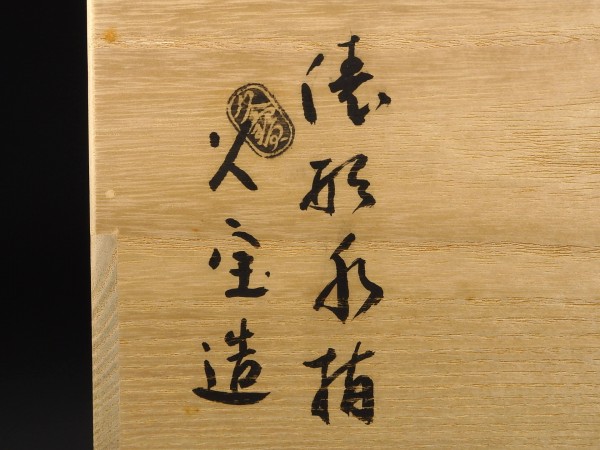 俵形水指
久宝造